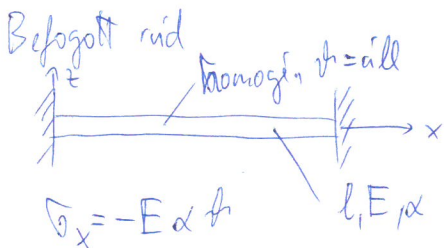 Befogott rúd
z
homogén ϑ = áll
x
σx = -E α ϑ
l, E, α